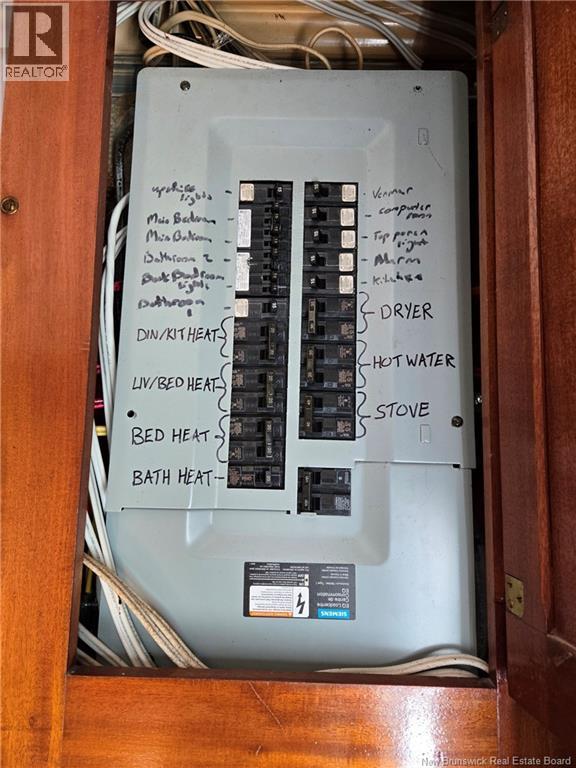 REALTOR®
upstairs lights
Main Bedroom
Main Bedroom
Bathroom 2
Back Bedroom lights
Bathroom 1
DIN/KIT HEAT
LIV/BED HEAT
BED HEAT
BATH HEAT
Venmar
computer room
Top porch light
Alarm
Kitchen
DRYER
HOT WATER
STOVE
SIEMENS
EQ Loadcentre
Centre de
Consommation
EQ
New Brunswick Real Estate Board